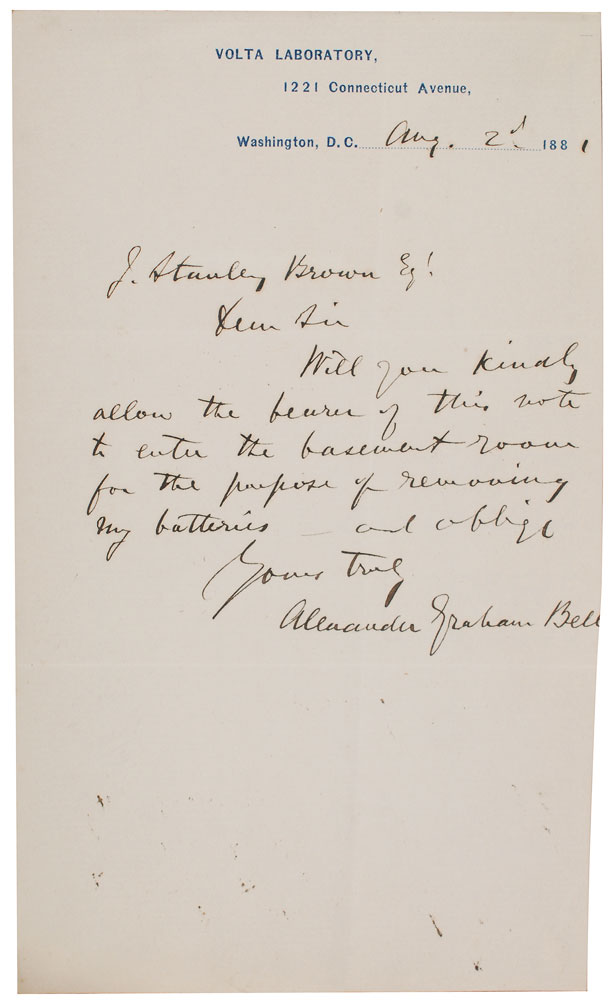 VOLTA LABORATORY,
1221 Connecticut Avenue,
Washington, D. C. Aug. 2d 1881
J. Stanley Brown Esq.
Dear Sir
Will you kindly
allow the bearer of this note
to enter the basement room
for the purpose of removing
my batteries — and oblige
Yours truly
Alexander Graham Bell